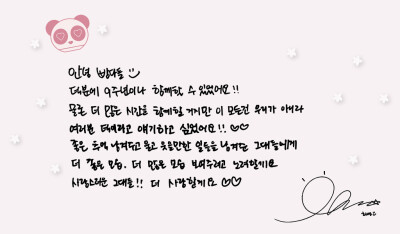 안녕 방다들
덕분에 9주년이나 함께할 수 있었어요!!
물론 더 많은 시간을 함께할 거지만 이 모든건 우리가 아니라
여러분 덕이라고 얘기하고 싶었어요!! ♡♡
좋은 추억 남겨주고 울고 웃을만한 일들을 남겨준 그대들에게
더 좋은 모습, 더 많은 모습 보여주려고 노력할게요
사랑스러운 그대들!! 더 사랑할게요 ♡♡